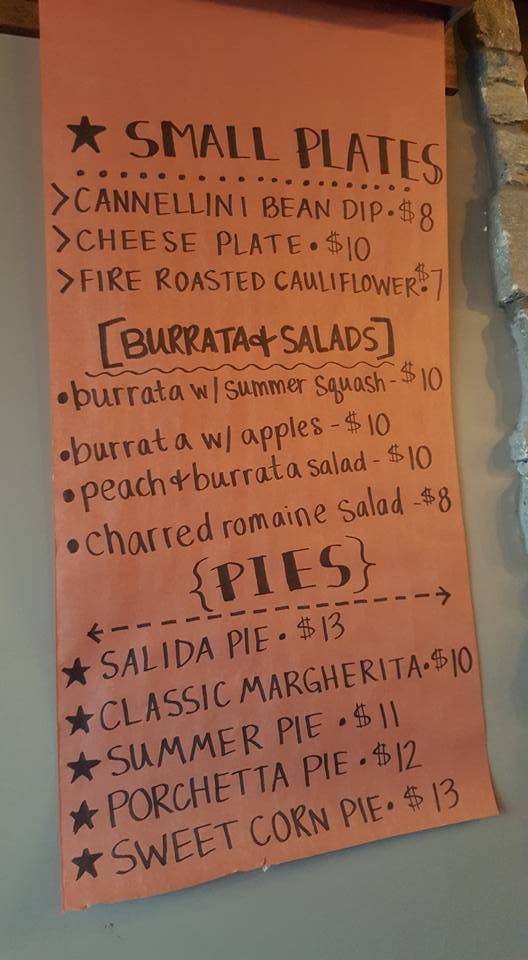 ★ SMALL PLATES
>CANNELLINI BEAN DIP•$8
>CHEESE PLATE•$10
>FIRE ROASTED CAULIFLOWER•$7
[BURRATA & SALADS]
•burrata w/summer squash-$10
•burrata w/ apples-$10
•peach & burrata salad-$10
•charred romaine salad-$8
{PIES}
★ SALIDA PIE•$13
★ CLASSIC MARGHERITA•$10
★ SUMMER PIE•$11
★ PORCHETTA PIE•$12
★ SWEET CORN PIE•$13